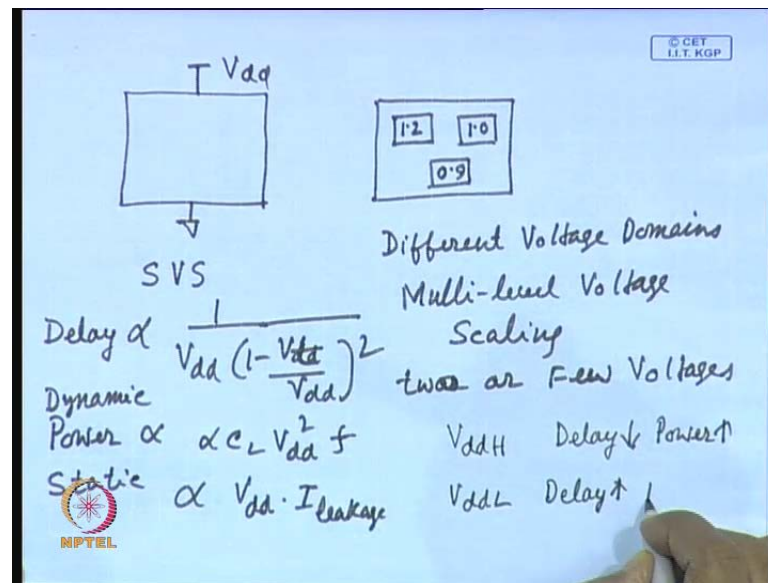 © CET
I.I.T. KGP
Vdd
1.2 1.0
0.9
SVS
Different Voltage Domains
Multi-level Voltage
Scaling
two or Few Voltages
Delay ∝ 1 / Vdd (1 - Vt / Vdd)²
Dynamic
Power ∝ α CL Vdd² f
Static ∝ Vdd · I leakage
VddH Delay↓ Power↑
VddL Delay↑
NPTEL